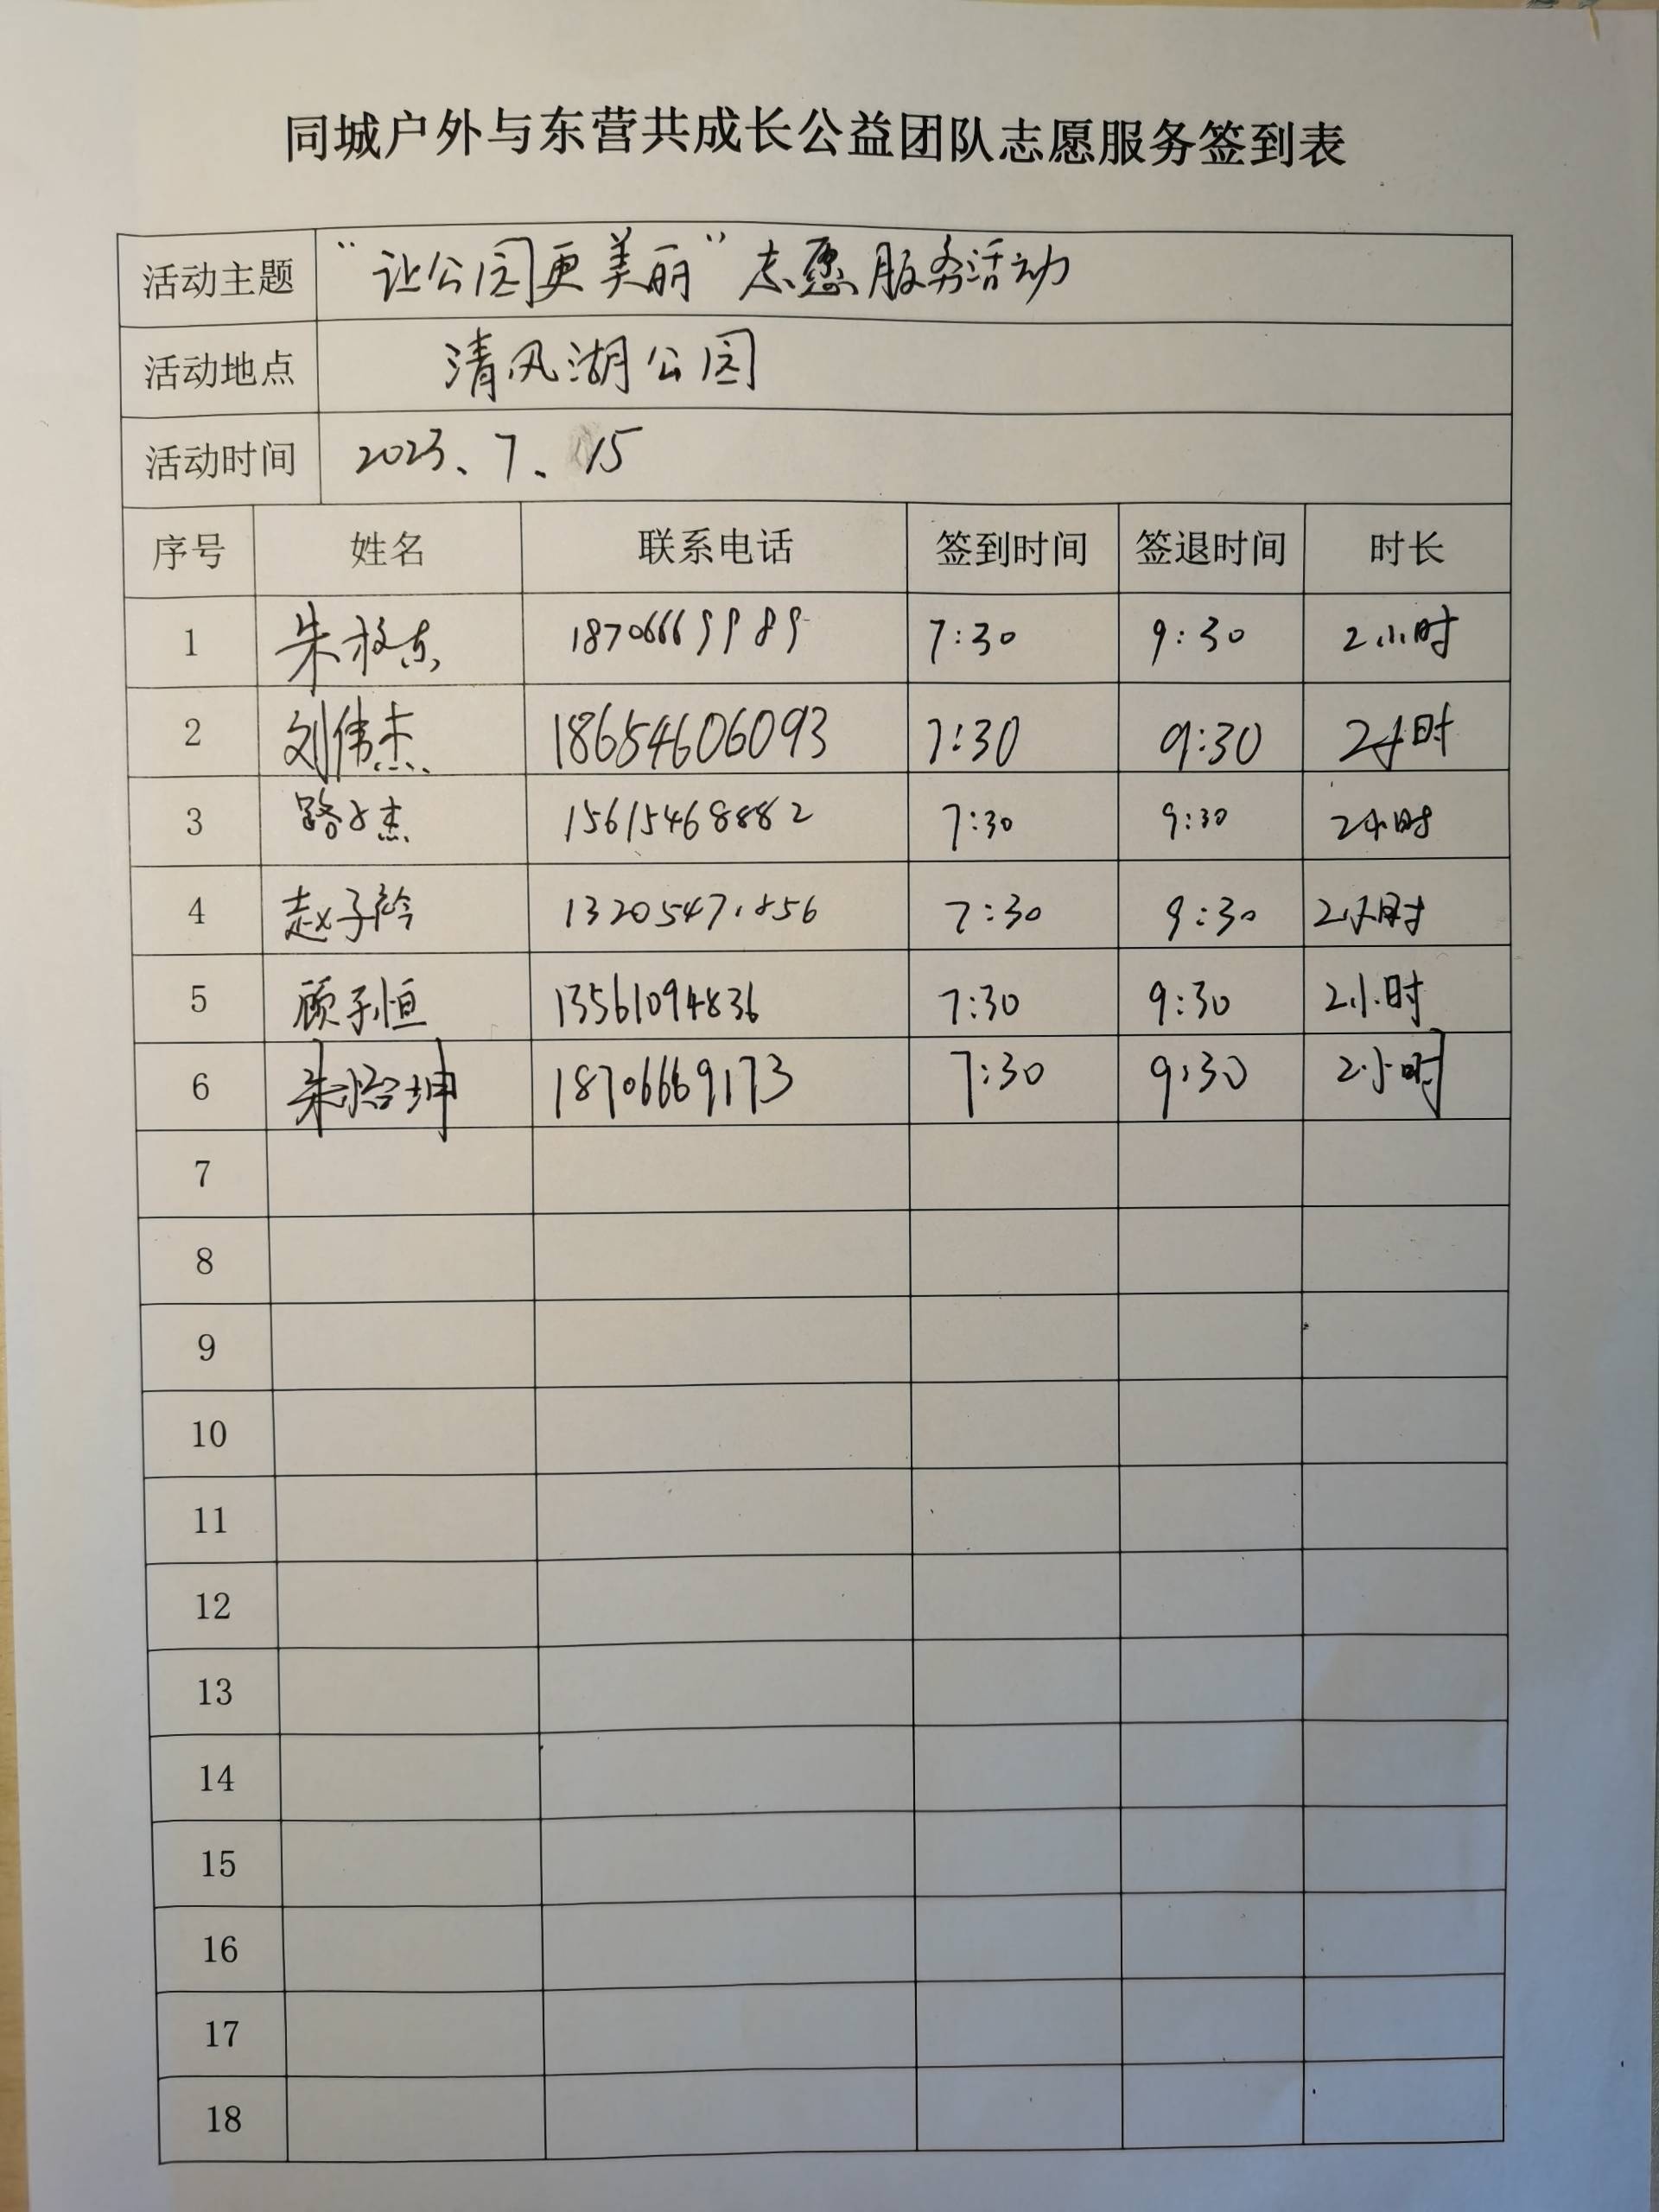 同城户外与东营共成长公益团队志愿服务签到表
活动主题 “让公园更美丽”志愿服务活动
活动地点 清风湖公园
活动时间 2023、7、15
序号 姓名 联系电话 签到时间 签退时间 时长
1 朱 18706669989 7:30 9:30 2小时
2 刘伟杰 18654606093 7:30 9:30 2小时
3 路 杰 15615468882 7:30 9:30 2小时
4 赵子衿 13205471856 7:30 9:30 2小时
5 顾子恒 13561094836 7:30 9:30 2小时
6 朱怡坤 18706669173 7:30 9:30 2小时
7
8
9
10
11
12
13
14
15
16
17
18